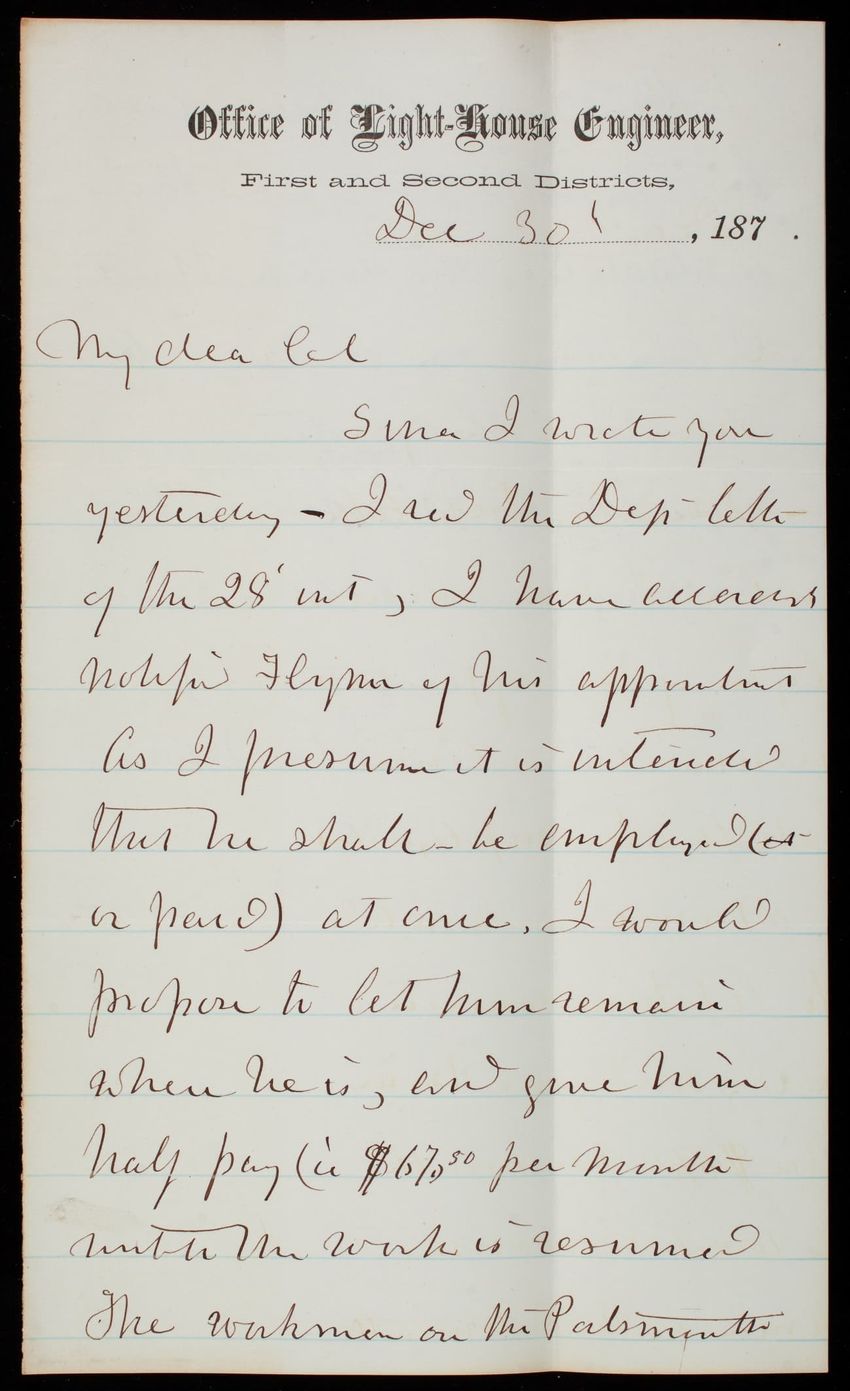 Office of Light-House Engineer,
First and Second Districts,
Dec 30', 187 .
My dear Col
Since I wrote you
yesterday - I recd the Dep't lette
of the 28' inst, I have
notified Flynn of his appointment
As I presume it is intended
that he shall - be employed (
or paid) at once, I would
propose to let him remain
where he is, and give him
half pay (ie $67.50 per month
until the work is resumed
The workmen on the Portsmouth